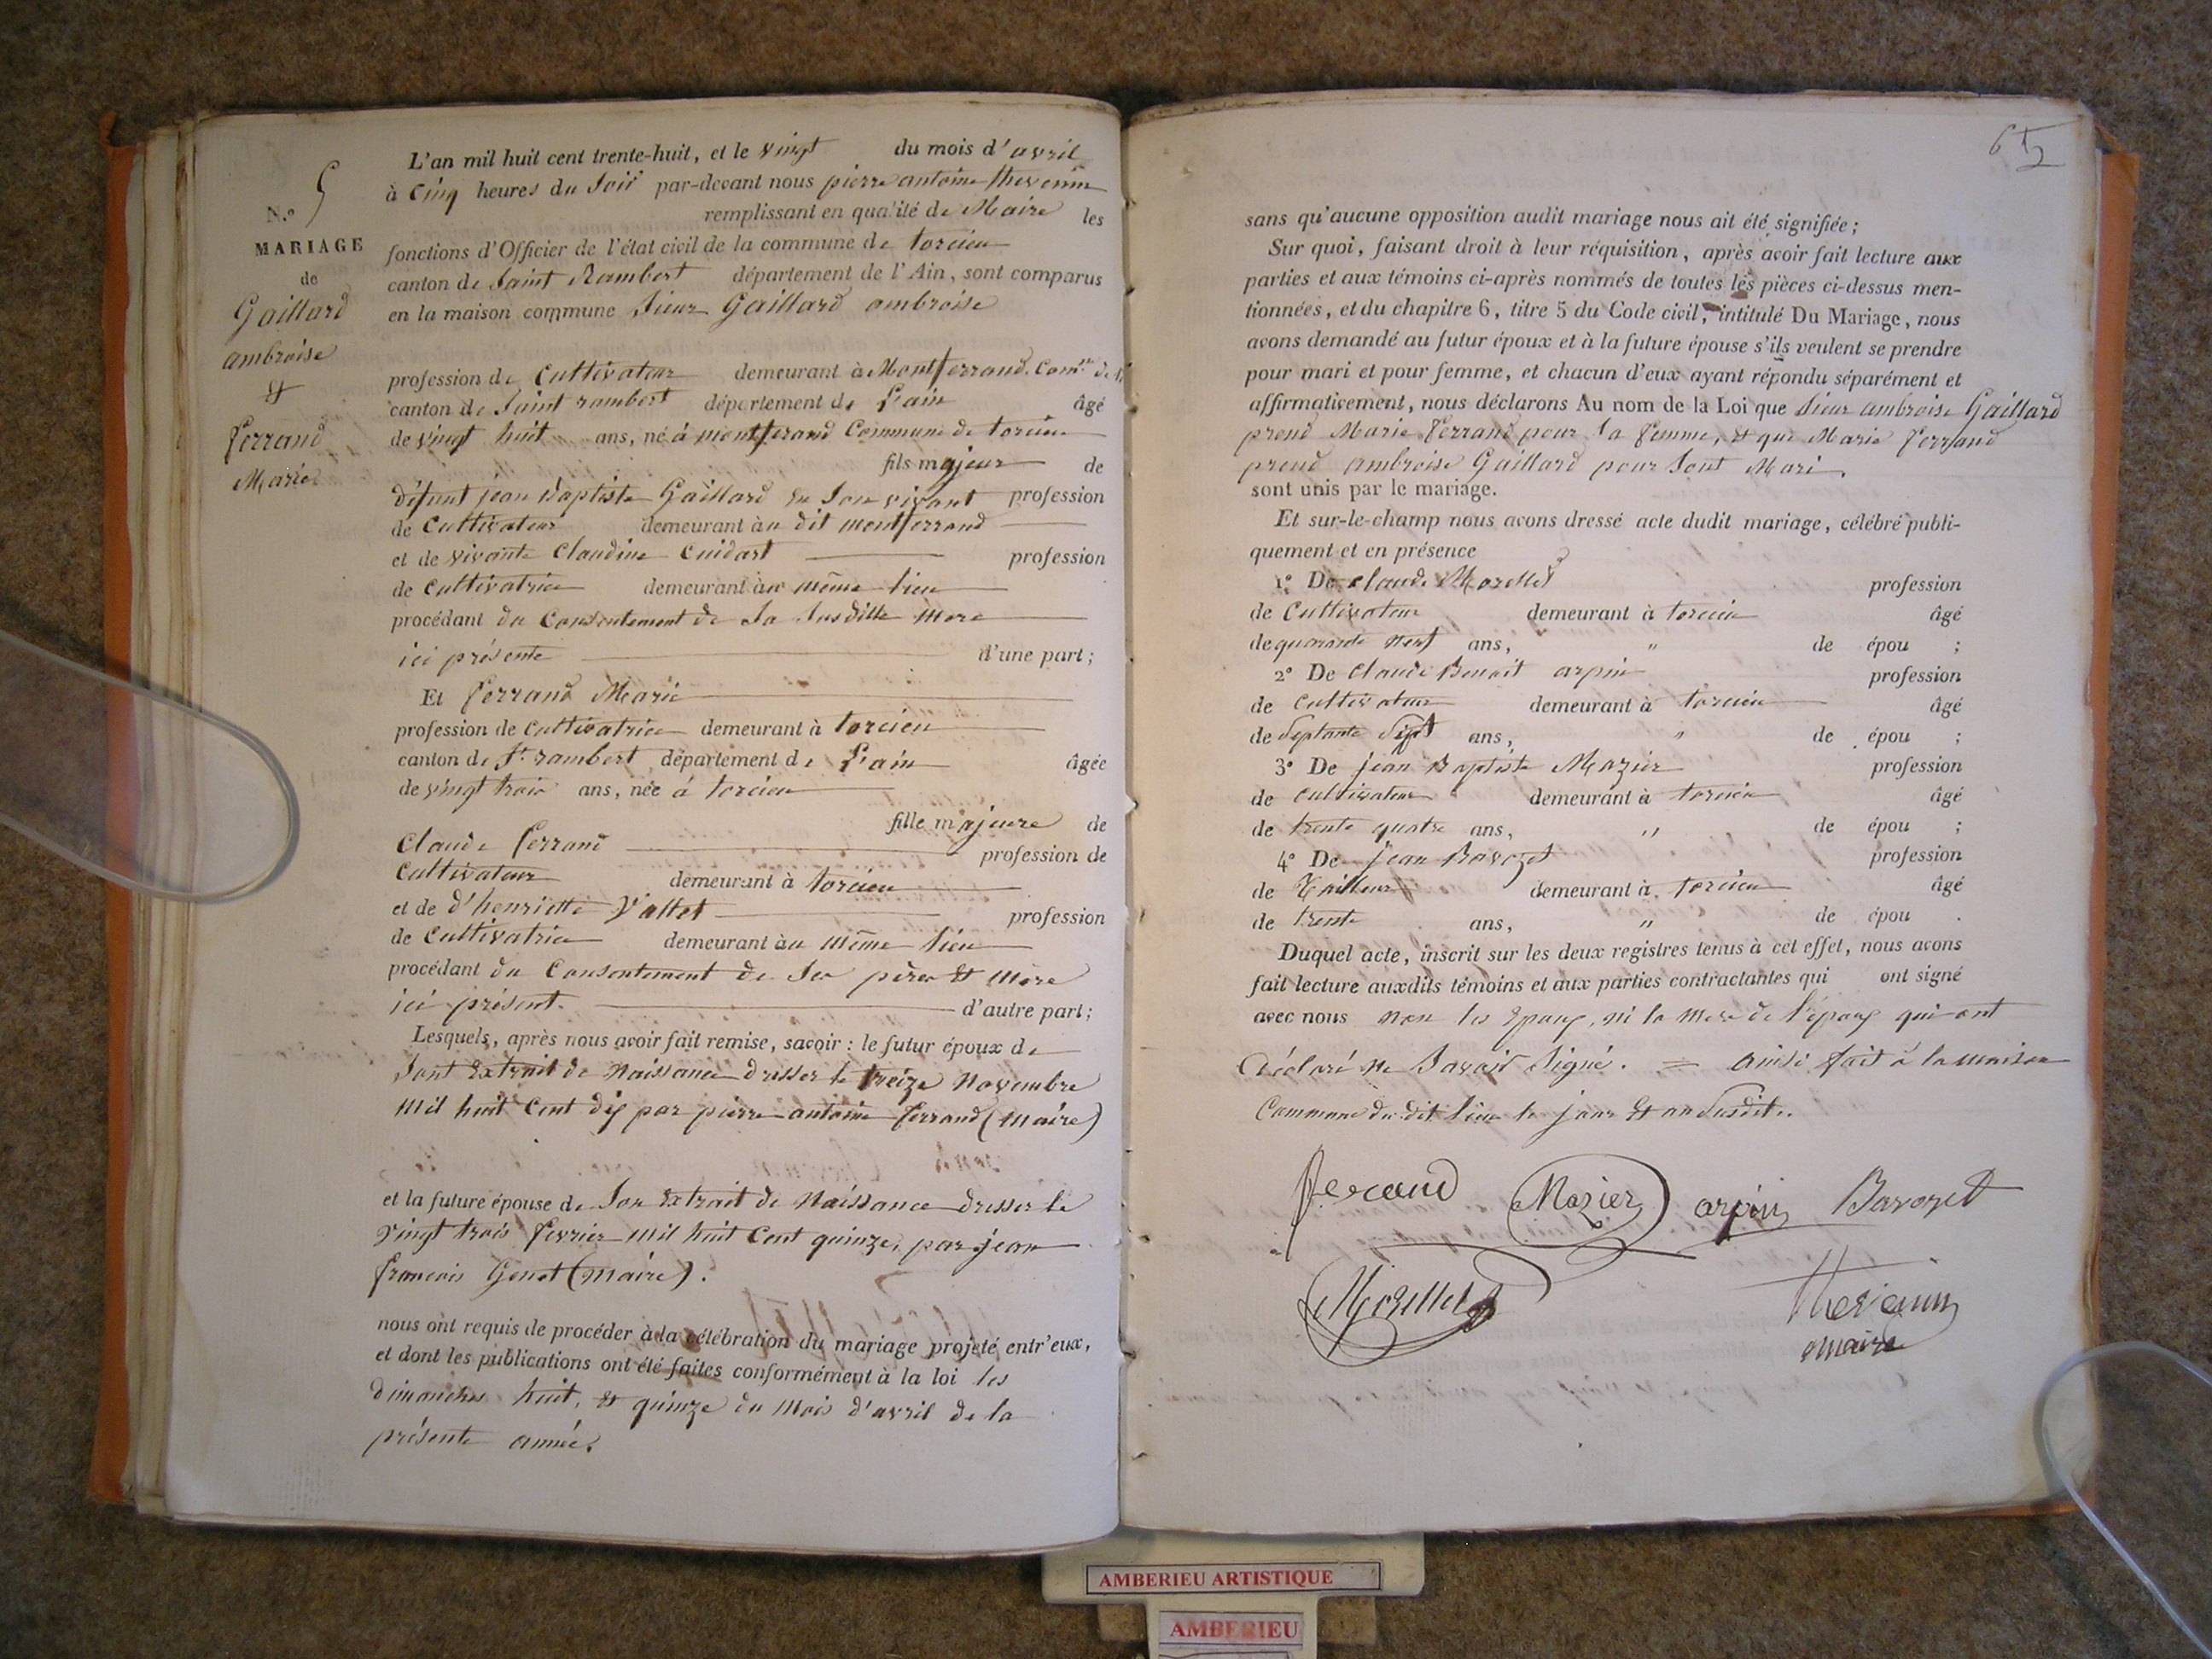 N.o 5
MARIAGE
de
Gaillard
ambroise
&
ferrand
Marie
L'an mil huit cent trente-huit, et le vingt du mois d'avril
à cinq heures du soir par-devant nous pierre antoine thevenin
remplissant en qualité de Maire les
fonctions d'Officier de l'état civil de la commune de torcieu
canton de saint Rambert département de l'Ain, sont comparus
en la maison commune sieur Gaillard ambroise
profession de cultivateur demeurant à Montferrand. Com.ne de
canton de saint rambert département de l'ain âgé
de vingt huit ans, né à montferrand Commune de torcieu
fils majeur de
défunt jean baptiste Gaillard en son vivant profession
de cultivateur demeurant au dit montferrand
et de vivante claudine cuidart profession
de cultivatrice demeurant au même lieu
procédant du consentement de sa susditte mere
ici présente d'une part;
Et ferrand Marie
profession de cultivatrice demeurant à torcieu
canton de St. rambert département de l'ain âgée
de vingt trois ans, née à torcieu
fille majeure de
claude ferrand profession de
cultivateur demeurant à torcieu
et de d'henriette Vallet profession
de cultivatrice demeurant au même lieu
procédant du consentement de ses père & mère
ici présent. d'autre part;
Lesquels, après nous avoir fait remise, savoir: le futur époux de
sont extrait de naissance dresser le treize novembre
mil huit cent dix par pierre antoine ferrand (maire)
et la future épouse de son extrait de naissance dresser le
vingt trois fevrier mil huit cent quinze, par jean
francois Genet (maire).
nous ont requis de procéder à la célébration du mariage projeté entr'eux,
et dont les publications ont été faites conformément à la loi les
dimanches huit, & quinze du mois d'avril de la
présente année.
sans qu'aucune opposition audit mariage nous ait été signifiée;
Sur quoi, faisant droit à leur réquisition, après avoir fait lecture aux
parties et aux témoins ci-après nommés de toutes les pièces ci-dessus men-
tionnées, et du chapitre 6, titre 5 du Code civil, intitulé Du Mariage, nous
avons demandé au futur époux et à la future épouse s'ils veulent se prendre
pour mari et pour femme, et chacun d'eux ayant répondu séparément et
affirmativement, nous déclarons Au nom de la Loi que sieur ambroise Gaillard
prend Marie ferrand pour sa femme, & que Marie ferrand
prend ambroise Gaillard pour sont Mari.
sont unis par le mariage.
Et sur-le-champ nous avons dressé acte dudit mariage, célébré publi-
quement et en présence
1.o De claude Morellet profession
de cultivateur demeurant à torcieu âgé
de quarante neuf ans, " de épou ;
2o De claude Benoit arpin profession
de cultivateur demeurant à torcieu âgé
de septante sept ans, " de épou ;
3o De jean Baptiste Mazier profession
de cultivateur demeurant à torcieu âgé
de trente quatre ans, " de épou ;
4o De jean Bavozet profession
de tailleur demeurant à torcieu âgé
de trente ans, " de épou .
Duquel acte, inscrit sur les deux registres tenus à cet effet, nous avons
fait lecture auxdits témoins et aux parties contractantes qui ont signé
avec nous non les epoux, ni la mere de l'époux qui ont
déclaré ne savoir signé. = ainsi fait à la maison
commune du dit lieu le jour & an susdit.
ferrand Mazier arpin Bavozet
Morellet thevenin
maire
AMBERIEU ARTISTIQUE
AMBERIEU